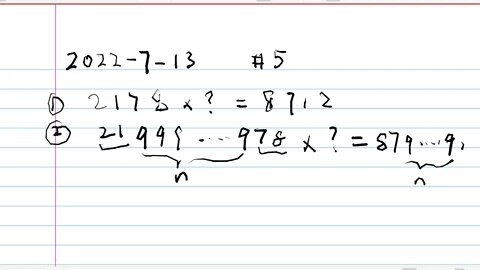 2022-7-13 #5
① 2178 x ? = 8712
② 21999...978 x ? = 879...9,
n n